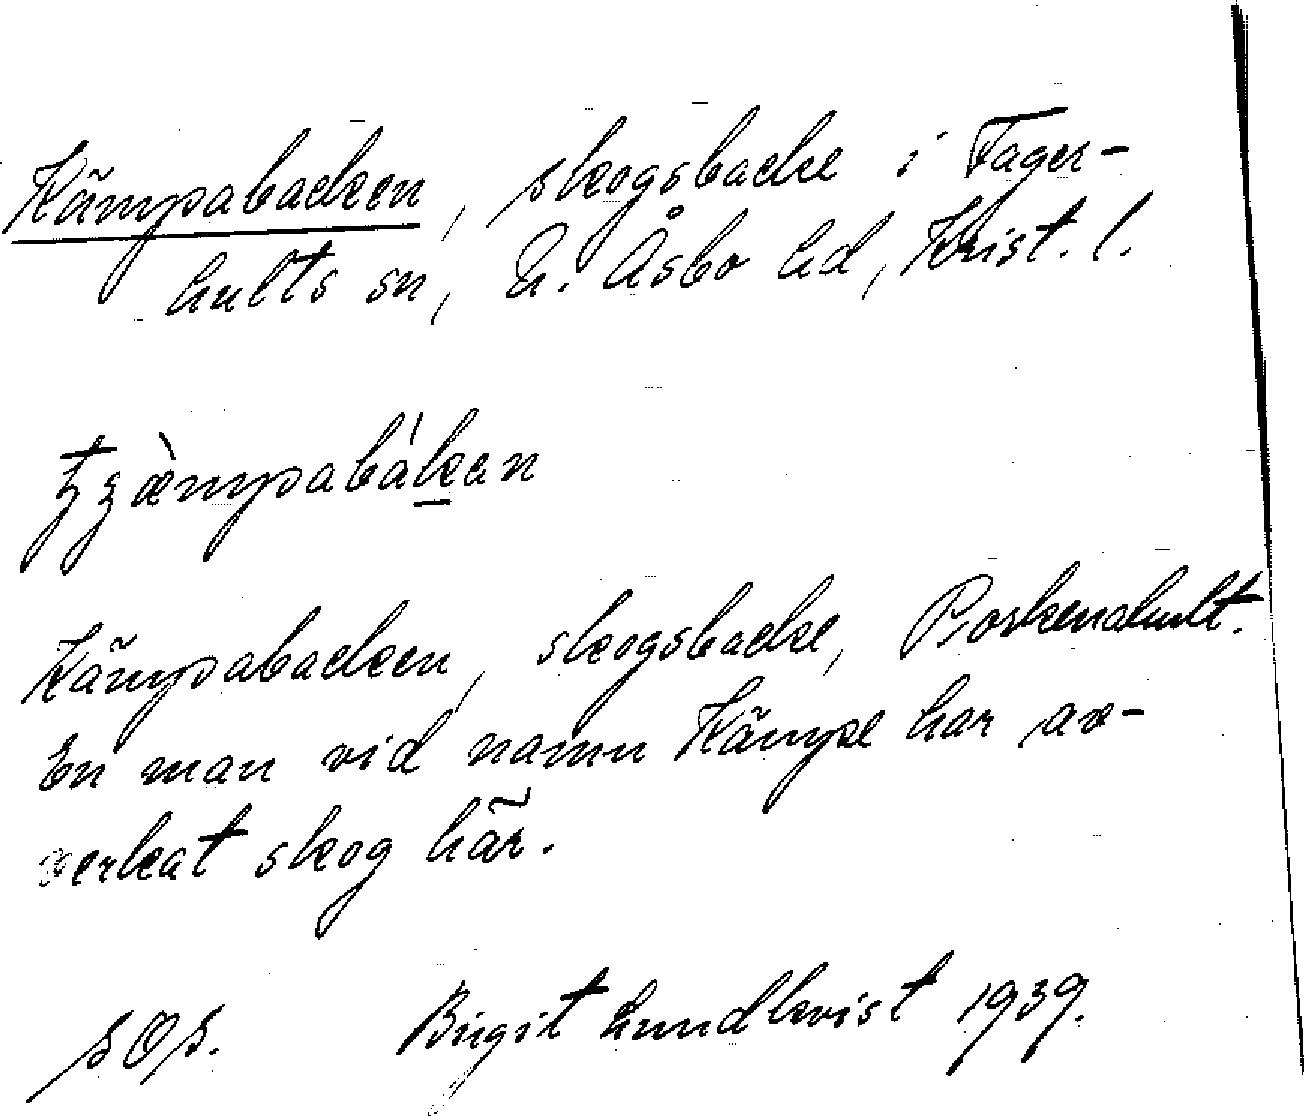 Kämpabacken, skogsbacke i Fager-
hults sn, N. Åsbo hd, Krist. l.
kämpabacken, skogsbacke,
En man vid namn Kämpe har av-
verkat skog här.
SOS. Birgit Lundkvist 1939.